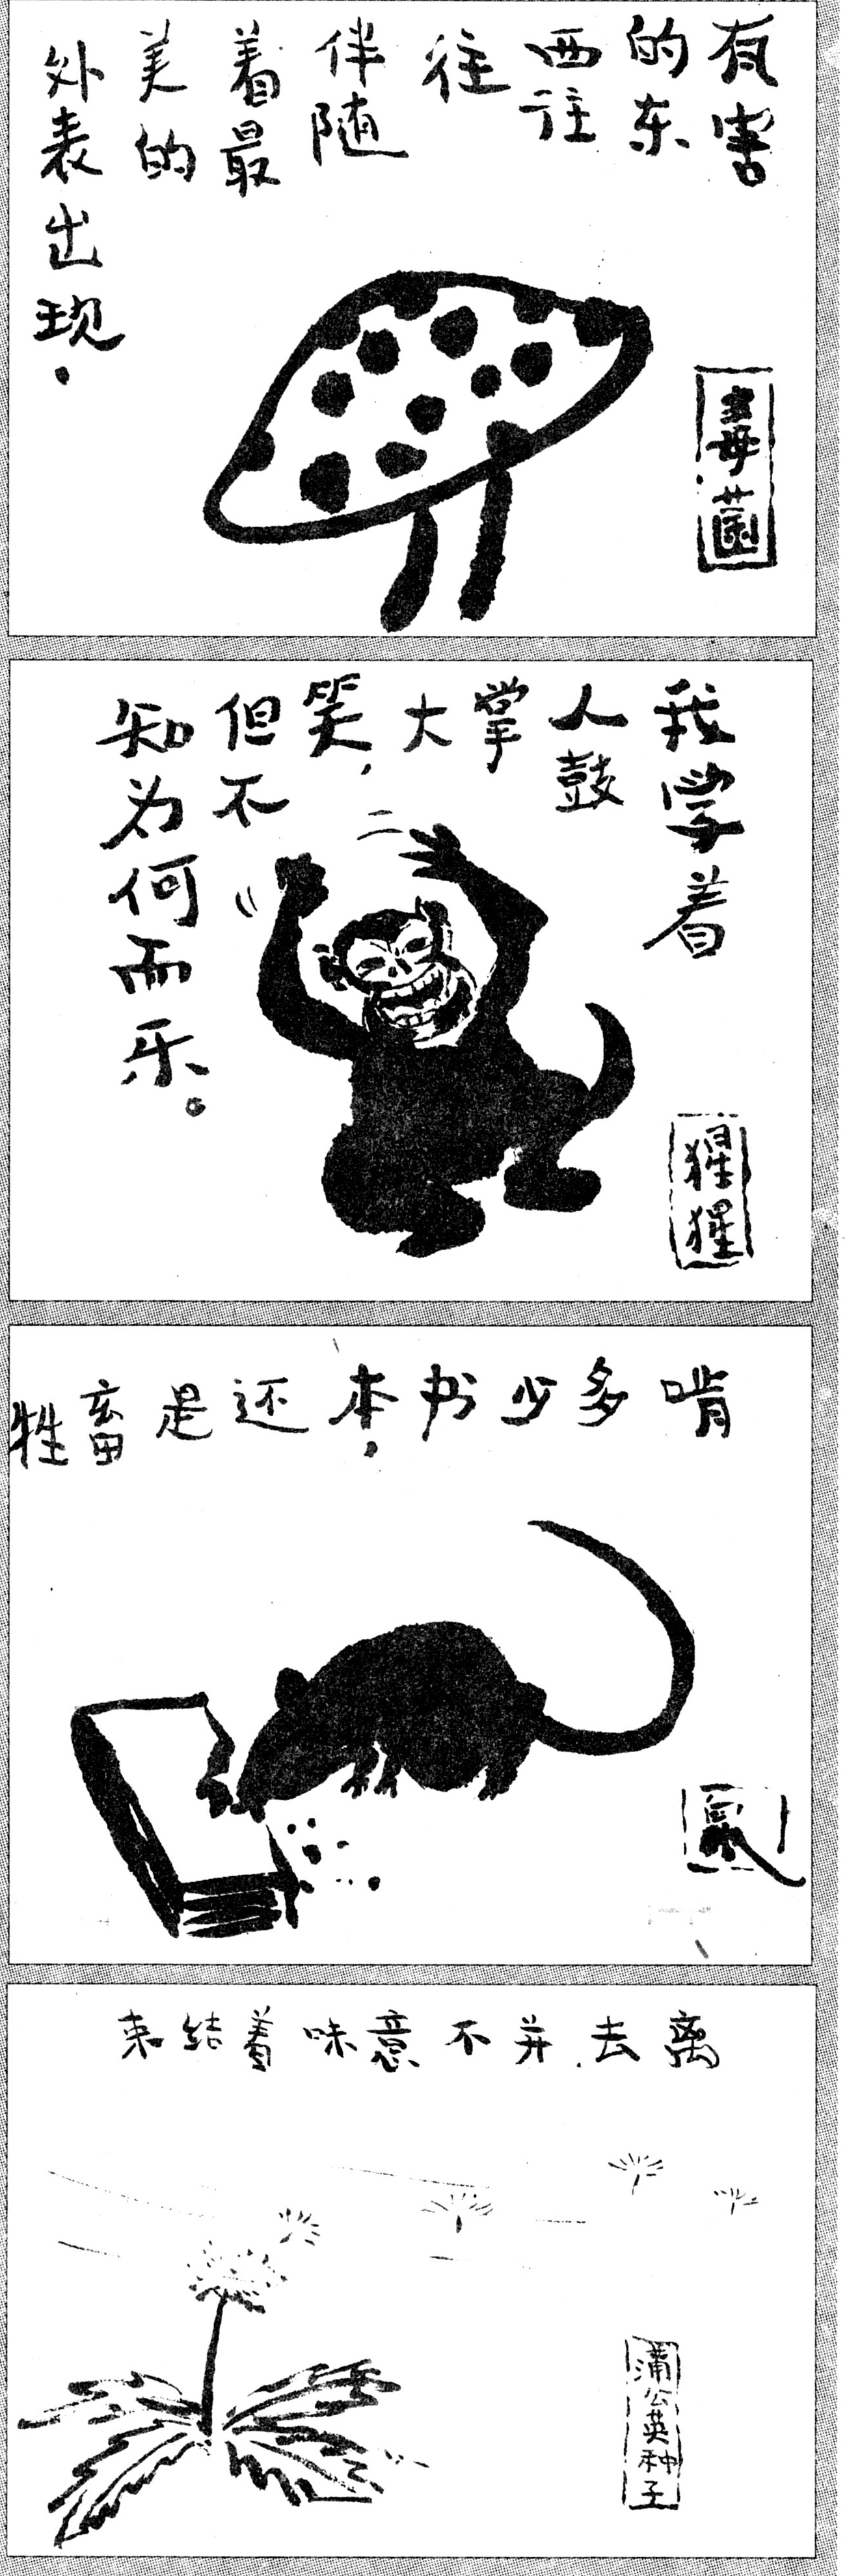 有害
的东
西往
往
伴随
着最
美的
外表出现.
毒菌
我学着
人鼓
掌
大
笑,
但不
知为何而乐。
猩猩
啃多少书本,还是畜牲
鼠
离去.并不意味着结束
蒲公英种子